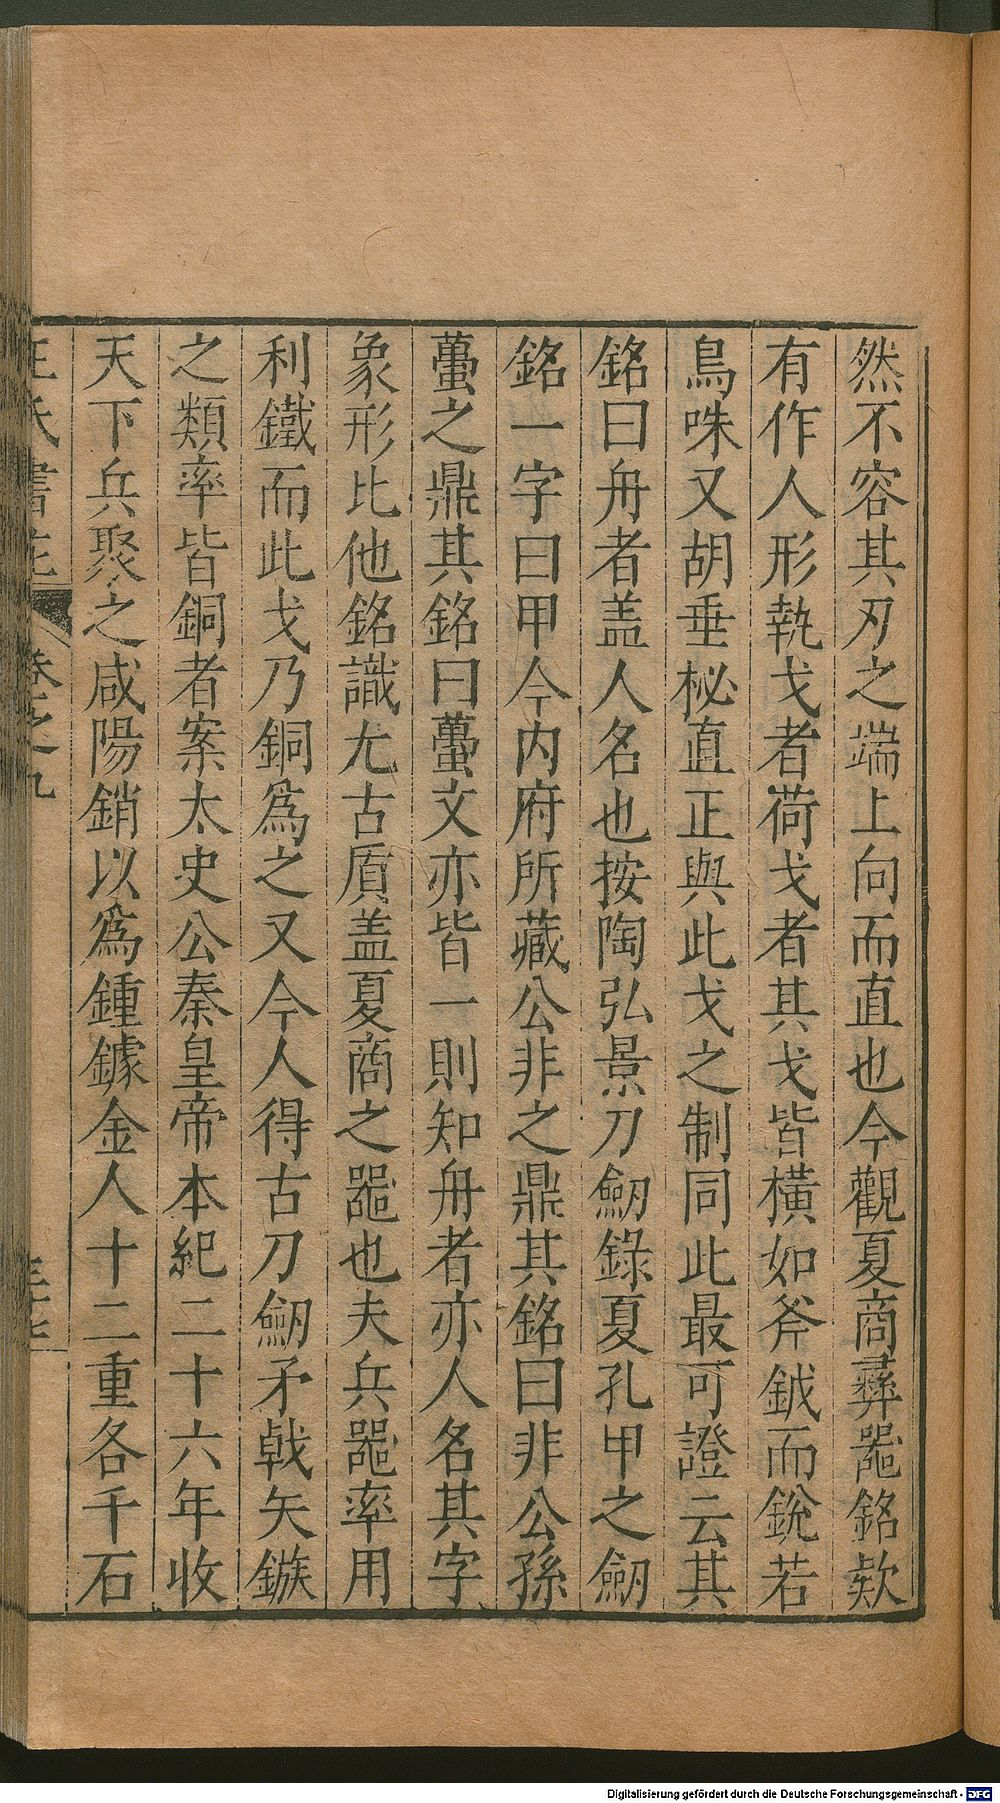 然不容其刃之端上向而直也今觀夏商彞噐銘欵
有作人形執戈者荷戈者其戈皆橫如斧鉞而銳若
鳥咮又胡垂柲直正與此戈之制同此最可證云其
銘曰舟者盖人名也按陶弘景刀劒錄夏孔甲之劒
銘一字曰甲今内府所藏公非之鼎其銘曰非公孫
蠆之鼎其銘曰蠆文亦皆一則知舟者亦人名其字
象形比他銘識尤古質盖夏商之噐也夫兵噐率用
利鐵而此戈乃銅爲之又今人得古刀劒矛戟矢鏃
之類率皆銅者案太史公秦皇帝本紀二十六年收
天下兵聚之咸陽銷以爲鍾鐻金人十二重各千石
王氏書苑
卷之九
Digitalisierung gefördert durch die Deutsche Forschungsgemeinschaft - DFG